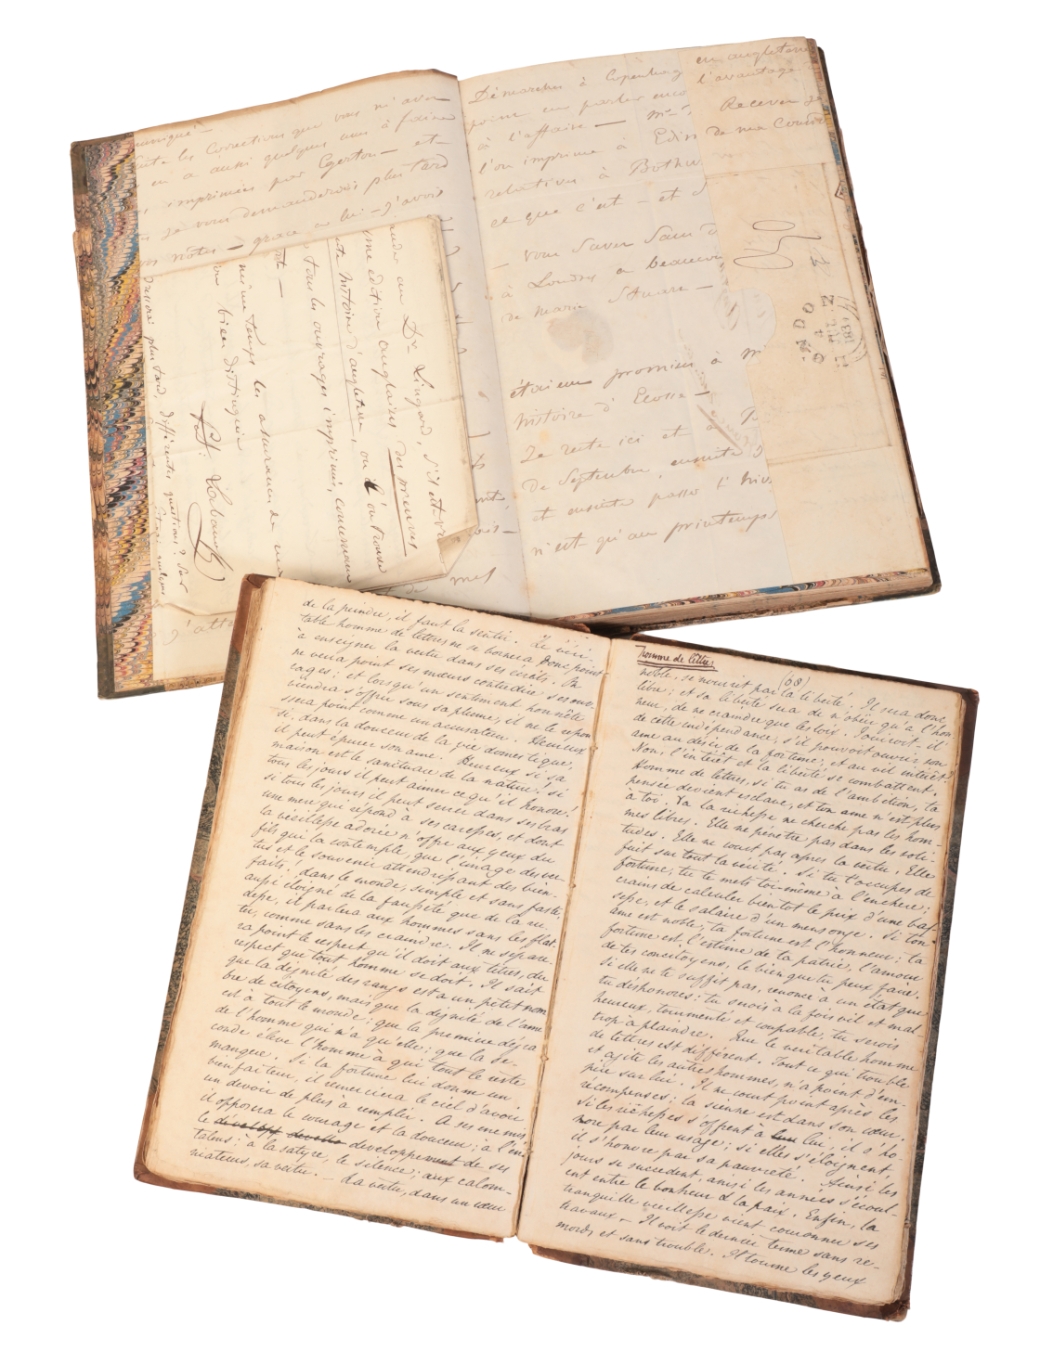 muniqué —
toutes les corrections que vous m'avez
en a aussi quelques unes à faire
imprimées par Egerton — et
je vous demanderais plus tard
vos notes — grace en lui — j'avois
ander au Dr. Lingard, s'il est vrai
une edition anglaise, des preuves
histoire d'angleterre, ou l'on trouve
tous les ouvrages imprimés, concernant
même temps les assurances de ma
bien distinguée
Pr. Labanoff
J'aurai plus tard, différentes questions
Démarches à Copenhag
point en parler enco
à l'affaire — Mr.
l'on imprime à Edin
relatives à Bothw
ce que c'est — et s
— vous savez sans d
à Londres a beaucou
de Marie Stuart —
étaient promises à M
histoire d'Ecosse —
Je reste ici et
de Septembre ensuite
et ensuite passer l'hiv
n'est qu'au printemps
en angleterre
l'avantage
Recevez
de ma Consi
de la peindre, il faut la sentir. Le véri-
table homme de lettres ne se bornera donc point
à enseigner la vertu dans ses écrits. On
ne verra point ses mœurs contredire ses ou-
vrages: et lorsqu'un sentiment honnête
viendra s'offrir sous sa plume, il ne le repous
sera point comme un accusateur. Heureux
si, dans la douceur de la vie domestique,
il peut épurer son ame. Heureux si sa
maison est le sanctuaire de la nature! si
tous les jours il peut aimer ce qu'il honore!
si tous les jours il peut serrer dans ses bras
une mere qui répond à ses caresses, et dont
la vieillesse adorée n'offre aux yeux du
fils qui la contemple que l'image des ver-
tus et le souvenir attendrissant des bien-
faits! dans le monde, simple et sans faste;
aussi éloigné de la fausseté que de la ru-
desse, il parlera aux hommes sans les flat
ter, comme sans les craindre. Il ne sépare-
ra point le respect qu'il doit aux titres, du
respect que tout homme se doit. Il sait
que la dignité des rangs est à un petit nom
bre de citoyens, mais que la dignité de l'ame
est à tout le monde; que la premiere dégra
de l'homme qui n'a qu'elle; que la se-
conde éleve l'homme à qui tout le reste
manque. Si la fortune lui donne un
bienfaiteur, il remerciera le ciel d'avoir
un devoir de plus à remplir. A ses ennemis
il opposera le courage et la douceur; à l'envie
le developpement de ses
talens; à la satyre, le silence; aux calom-
niateurs, sa vertu. — La vertu, dans un cœur
homme de lettres
(68)
noble, se nourrit par la liberté. Il sera donc
libre; et sa liberté sera de n'obéir qu'à l'hon
neur, de ne craindre que les loix. Jouiroit-il
de cette indépendance, s'il pouvoit ouvrir son
ame au désir de la fortune, et au vil intérêt?
Non, l'intérêt et la liberté se combattent.
Homme de lettres, si tu as de l'ambition, ta
pensée devient esclave, et ton ame n'est plus
à toi. Va la richesse ne cherche pas les hom-
mes libres. Elle ne pénetre pas dans les soli-
tudes. Elle ne court pas après la vertu. Elle
fuit sur tout la vérité. Si tu t'occupes de
fortune, tu te mets toi-même à l'enchere;
crains de calculer bientot le prix d'une bas-
sesse, et le salaire d'un mensonge. Si ton
ame est noble, ta fortune est l'honneur; ta
fortune est l'estime de ta patrie, l'amour
de tes concitoyens, le bien que tu peux faire.
Si elle ne te suffit pas, renonce à un état que
tu deshonores; tu serois à la fois vil et mal
heureux, tourmenté et coupable, tu serois
trop à plaindre. Que le véritable homme
de lettres est différent. Tout ce qui trouble
et agite les autres hommes, n'a point d'em-
pire sur lui. Il ne court point après les
récompenses; la sienne est dans son cœur.
Si les richesses s'offrent à lui, il s'ho-
nore par leur usage; si elles s'éloignent,
il s'honore par sa pauvreté. Ainsi les
jours se succedent, ainsi les années s'écoul-
ent entre le bonheur & la paix. Enfin, la
tranquille vieillesse vient couronner ses
travaux — Il voit le dernier terme sans re-
mords et sans trouble. Il tourne les yeux